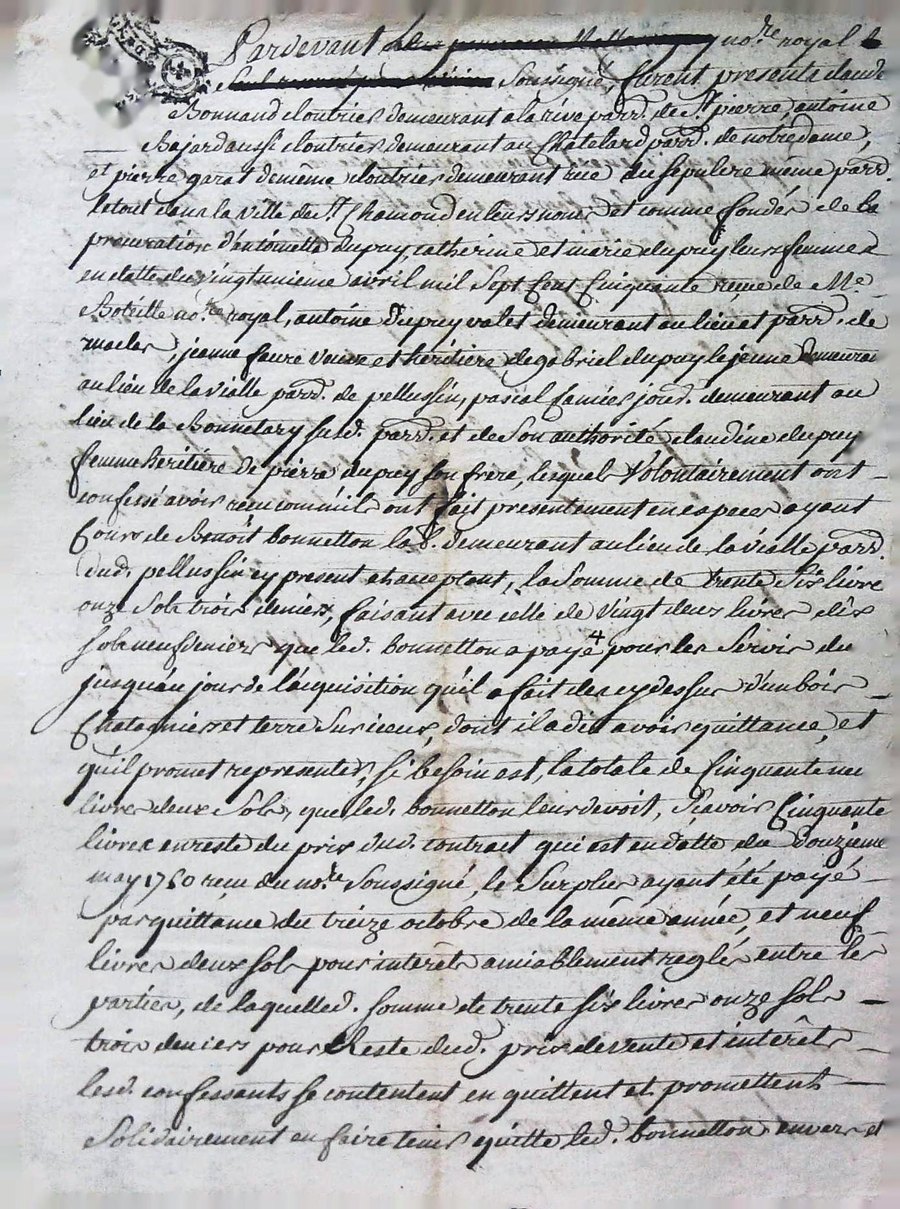 Pardevant no.re royal
Soussigné, furent présents claude
Bonnand cloutrier demeurant a la rive parr. de St pierre, antoine
Bajard aussi cloutrier demeurant au Chatelard parr. de notre dame,
et pierre garat de même cloutrier demeurant rue du sepulcre même parr.
le tout dans la ville de St Chamond en leurs noms et comme fondés de la
procuration d'antoinette dupuy, catherine et marie dupuy leurs femmes
en datte du vingtunieme avril mil Sept Cent Cinquante reçue de Me
Boteille no.re royal, antoine dupuy valet demeurant au lieu et parr. de
maclas, jeanne faure veuve et héritière de gabriel dupuy le jeune demeurant
au lieu de la vialle parr. de pellussin, pascal jour. demeurant au
lieu de la Bonnetary susd. parr. et de Son authorité claudine dupuy
femme heritière de pierre dupuy son frere, lesquels Volontairement ont
confessé avoir reçu comm'ils ont fait présentement en especes ayant
Cours de Benoît bonnetton lab. demeurant au lieu de la vialle parr.
dud. pellussin cy present et acceptant, la Somme de trente Six livres
onze Sols trois deniers, faisant avec celle de vingt deux livres dix
sols neuf deniers que led. bonnetton a payé pour les Servis du
jusqu'au jour de l'acquisition qu'il a fait des cy dessus d'un bois
Chatagniers et terre Sur iceux, dont il a dit avoir quittance, et
qu'il promet representer, si besoin est, la totale de Cinquante neuf
livres deux Sols, que led. bonnetton leur devoit, Sçavoir Cinquante
livres en reste du prix dud. contrat qui est en datte du douzieme
may 1750 reçu du no.re Soussigné, le Surplus ayant été payé
par quittance du treize octobre de la même année, et neuf
livres deux sols pour interêts amiablement reglés entre les
parties, de laquelled. somme de trente six livres onze sols
trois deniers pour Reste dud. prix de vente et interêts
lesd. confessants se contentent en quittent et promettent
Solidairement en faire tenir quitte led. bonnetton envers et